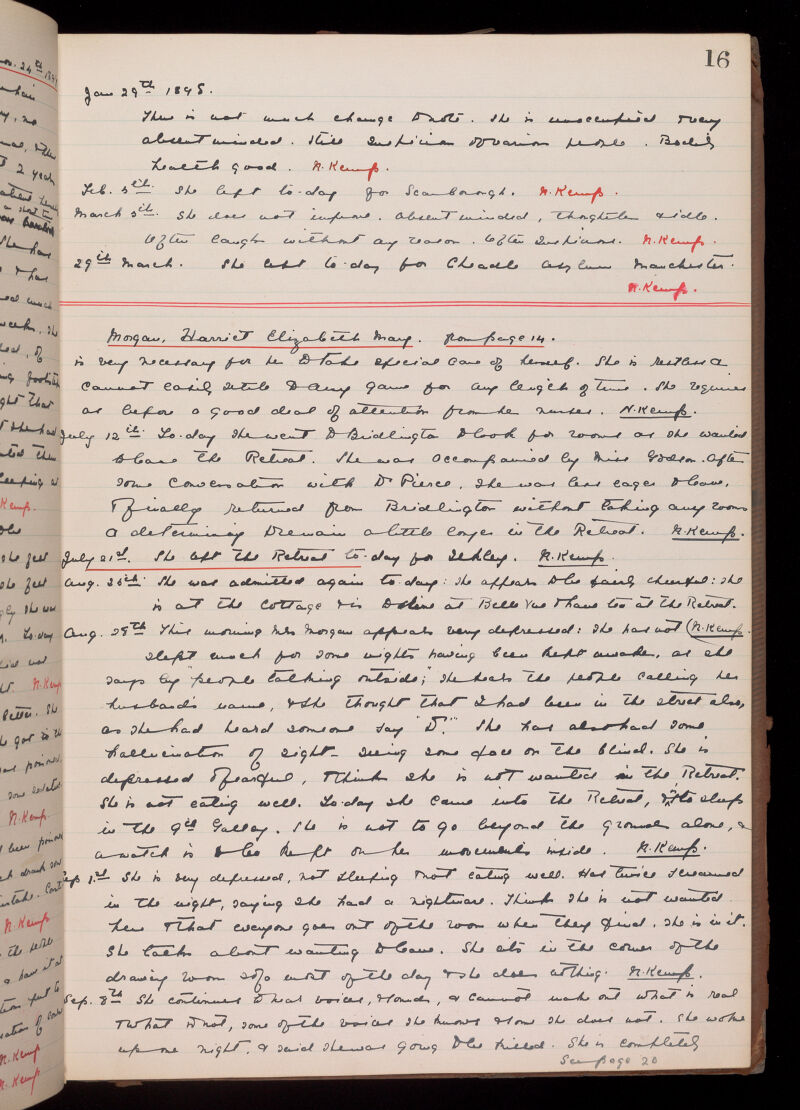 16
Jan 29th 1895.
There is not much change to note. She is unoccupied & very
absent minded. Still suspicious of various people. Bodily
health good. N. Kemp.
Feb. 5th. She left to-day for Scarborough. N. Kemp.
March 5th. She does not improve. Absent minded, thoughtless & idle.
Often laughs without any reason. Often suspicious. N. Kemp.
29th March. She left to-day for Cheadle Asylum Manchester.
N. Kemp.
Morgan, Harriet Elizabeth Mary. from page 14.
is very necessary for her to take special care of herself. She is restless &
cannot easily settle to any game for any length of time. She requires
as before a good deal of attention from her nurses. N. Kemp.
July 12th. To-day she went to Bridlington to look for rooms as she wanted
to leave the Retreat. She was accompanied by Miss After
some conversation with Dr Pierce, she was less eager to leave,
& finally returned from Bridlington without taking any rooms
& determining to remain a little longer in the Retreat. N. Kemp.
July 21st. She left the Retreat to-day for Ilkley. N. Kemp.
Aug. 26th. She was admitted again to-day: she appears to be fairly cheerful: she
is at the Cottage & is to dine at Belle Vue & have tea at the Retreat.
Aug. 29th This morning Mrs Morgan appears very depressed: she has not (N. Kemp.
slept much for some nights having been kept awake, as she
says by "people talking outside;" she hears the people calling her
husband's name, & she thought that I had been in the street also,
as she had heard someone say "D." She has also had some
hallucination of sight - seeing some face on the blind. She is
depressed & fearful, & thinks she is not wanted in the Retreat.
She is not eating well. To-day she came into the Retreat, & is to sleep
in the 9th Gallery. She is not to go beyond the grounds alone, &
a watch is to be kept on her movements inside. N. Kemp.
Sep. 1st She is very depressed, not sleeping & not eating well. Has twice screamed
in the night, saying she had a nightmare. Thinks she is not wanted
here & that everyone goes out of the room when they find she is in it.
She talks about wanting to leave. She sits in the corner of the
drawing room sofa most of the day & she does nothing. N. Kemp.
Sep. 8th She continues to hear voices, & sounds, & cannot make out what is real
& what is not, some of the voices she knows & some she does not. She woke
up one night, & said she was going to be killed. She is completely
See page 20